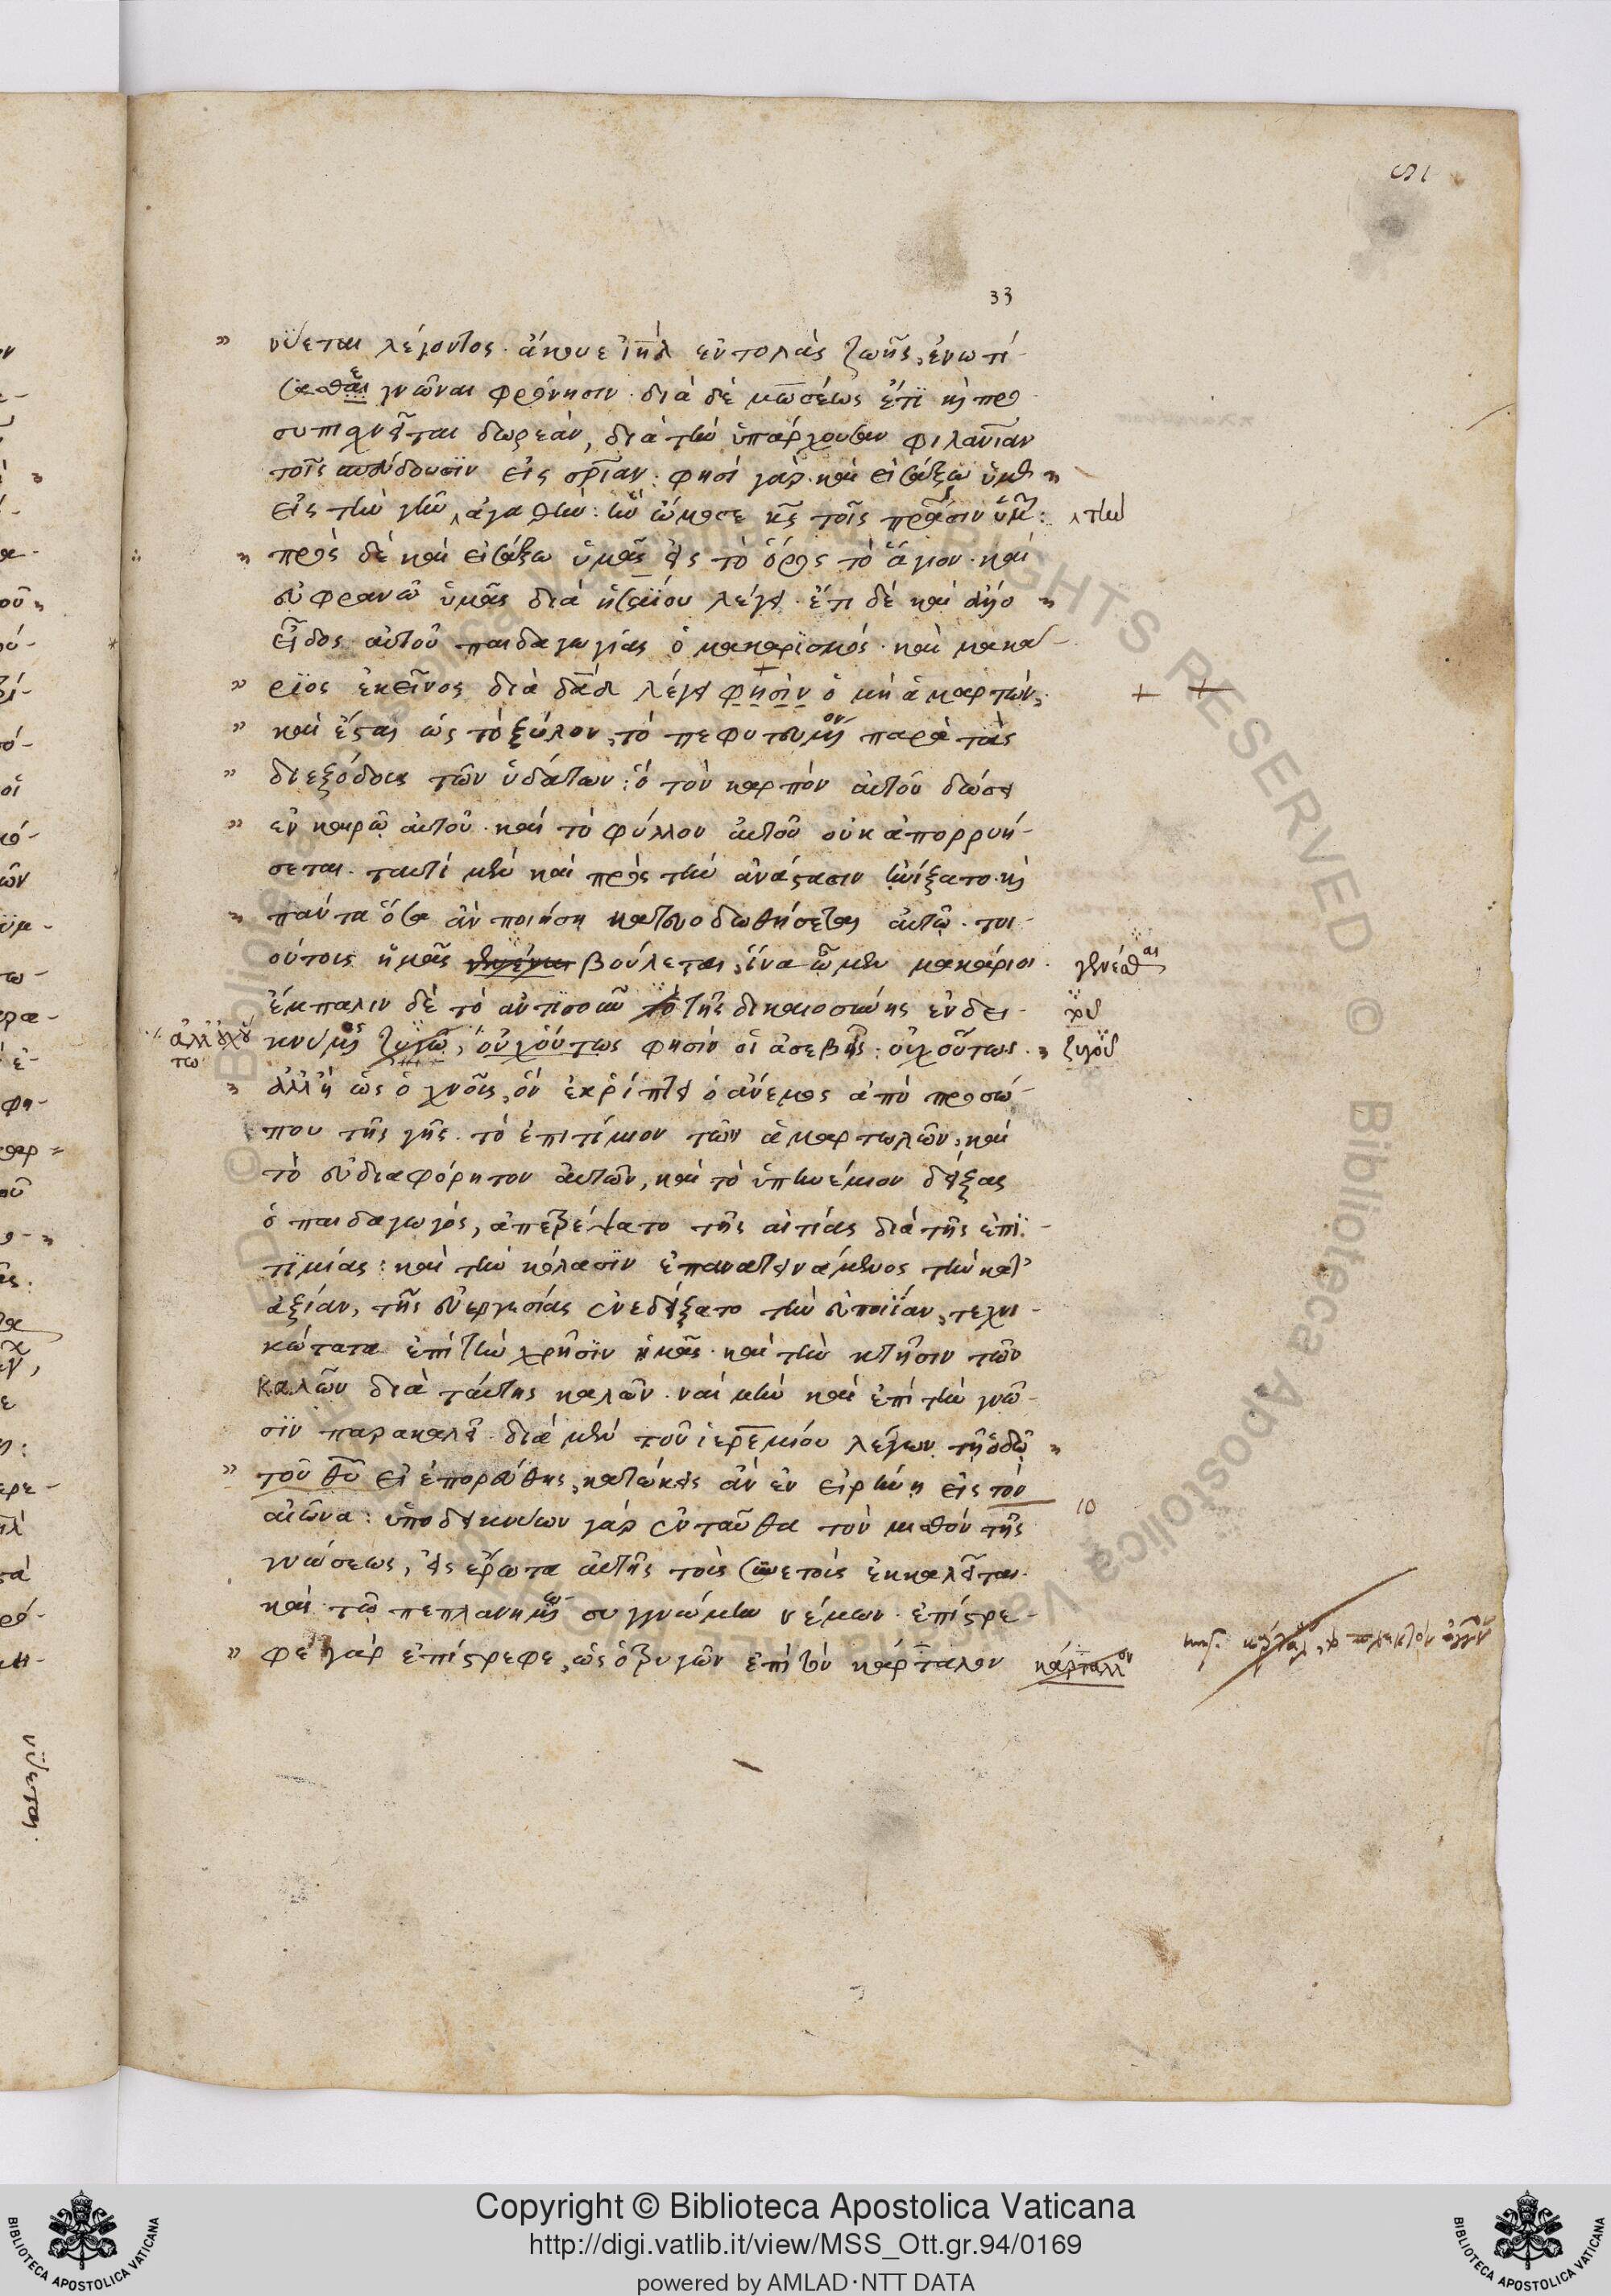 33
νύεται λέγοντος· ἄκουε ἰη̅λ ἐντολὰς ζωῆς, ἐνωτί-
σασθαι γνῶναι φρόνησιν· διὰ δὲ μω̅σέως ἔτι κὶ προ
συπισχνεῖται δωρεὰν, διὰ τὴν ὑπάρχουσαν φιλανίαν
τοῖς σπεύδουσϊν εἰς σρ̅ίαν: φησὶ γὰρ καὶ εἰσάξω ὑμᾶς
εἰς τὴν γῆν ἀγαθὴν: ἣν ὤμοσε κς̅ τοῖς πρᾶσιν ὑμῶν: τὴν
πρὸς δὲ καὶ εἰσάξω ὑμᾶς εἰς τὸ ὄρος τὸ ἅγιον· καὶ
εὐφρανῶ ὑμᾶς διὰ ἡσαΐου λέγει· ἔτι δὲ καὶ ἄλλο
εἶδος αὐτοῦ παιδαγωγίας ὁ μακαρϊσμός· καὶ μακά-
ρϊος ἐκεῖνος διὰ δα̅δ λέγει φησὶν ὁ μὴ ἁμαρτών,
καὶ ἔσται ὡς τὸ ξύλον, τὸ πεφυτευμένον παρὰ τὰς
διεξόδους τῶν ὑδάτων: ὃ τὸν καρπὸν αὐτοῦ δώσει
ἐν καιρῷ αὐτοῦ· καὶ τὸ φύλλον αὐτοῦ οὐκ ἀπορρυή-
σεται· ταυτὶ μὲν καὶ πρὸς τὴν ἀνάστασιν ᾐνίξατο· κὶ
πάντα ὅσα ἂν ποιήσῃ κατευοδωθήσεται αὐτῷ· τοι
ούτους ἡμᾶς βούλεται, ἵνα ὦμεν μακάριοι· γενέσθαι
ἔμπαλιν δὲ τὸ ἀντίσοιν τὸ τῆς δικαιοσύνης ἐνδει-
κνύμενος ζυγῶ, οὐχ οὕτως φησὶν οἱ ἀσεβεῖς: οὐχ οὕτως· ζυγοῦ
ἀλλ᾽ ἢ ὡς ὁ χνοῦς, ὃν ἐκρίπτει ὁ ἄνεμος ἀπὸ προσώ-
που τῆς γῆς· τὸ ἐπιτίμιον τῶν ἁμαρτωλῶν, καὶ
τὸ εὐδιαφόρητον αὐτῶν, καὶ τὸ ὑπηνέμιον δείξας
ὁ παιδαγωγός, ἀπετρέψατο τῆς αἰτίας διὰ τῆς ἐπϊ-
τϊμίας: καὶ τὴν κόλασϊν ἐπανατεινάμενος τὴν κατ᾽
ἀξίαν, τῆς εὐεργεσίας ἐνεδείξατο τὴν εὐποιΐαν, τεχνι-
κώτατα ἐπὶ τὴν χρῆσϊν ἡμᾶς· καὶ τὴν κτῆσιν τῶν
καλῶν διὰ ταύτης καλῶν· ναὶ μὴν καὶ ἐπὶ τὴν γνῶ-
σϊν παρακαλεῖ· διὰ μὲν τοῦ ἱερε̅μίου λέγων τῇ ὁδῷ
τοῦ θυ̅ εἰ ἐπορεύθης, κατῴκεις ἂν ἐν εἰρήνῃ εἰς τὸν
αἰῶνα: ὑποδεικνύων γὰρ ἐνταῦθα τὸν μισθὸν τῆς
γνώσεως, εἰς ἔρωτα αὐτῆς τοὺς συνετοὺς ἐκκαλεῖται·
καὶ τῷ πεπλανημένῳ συγγνώμην νέμων· ἐπίστρε-
φε γὰρ ἐπίστρεφε, ὡς ὁ τρυγῶν ἐπὶ τὸν κάρταλον κάρταλλον
Copyright © Biblioteca Apostolica Vaticana
http://digi.vatlib.it/view/MSS_Ott.gr.94/0169
powered by AMLAD·NTT DATA